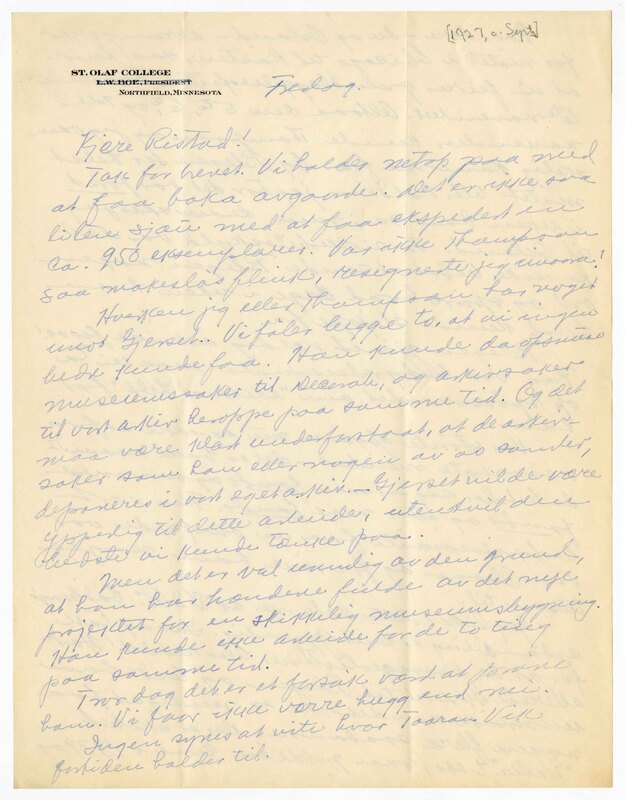 [1927, c. Sept.]
ST. OLAF COLLEGE
L.W. BOE, PRESIDENT
NORTHFIELD, MINNESOTA
Fredag.
Kjere Ristad!
Tak for brevet. Vi holder netop paa med
at faa boka avgaarde. Det er ikke saa
liten sjau med at faa ekspedert en
ca. 950 eksemplarer. Var ikke Thompson
saa makeløs flink, resignerte jeg imorra!
Hverken jeg eller Thompson har noget
imot Gjerset. Vi føler begge to, at vi ingen
bedre kunde faa. Han kunde da opsnuse
museumssaker til Decorah, og arkivsaker
til vort arkiv heroppe paa samme tid. Og det
maa være klart underforstaat, at de arkiv-
saker som han eller nogen av os samler,
deponeres i vort eget arkiv. — Gjerset vilde være
ypperlig til dette arbeide, utentvil den
bedste vi kunde tænke paa.
Men det er vel uendig av den grund,
at han har hændene fulde av det nye
projektet for en skikkelig museumsbygning.
Han kunde ikke arbeide for de to ting
paa samme tid.
Tror dog det er et forsøk værd at prøve
ham. Vi faar ikke værre hugg end nei.
Ingen synes at vite hvor Vik
fortiden holder til.